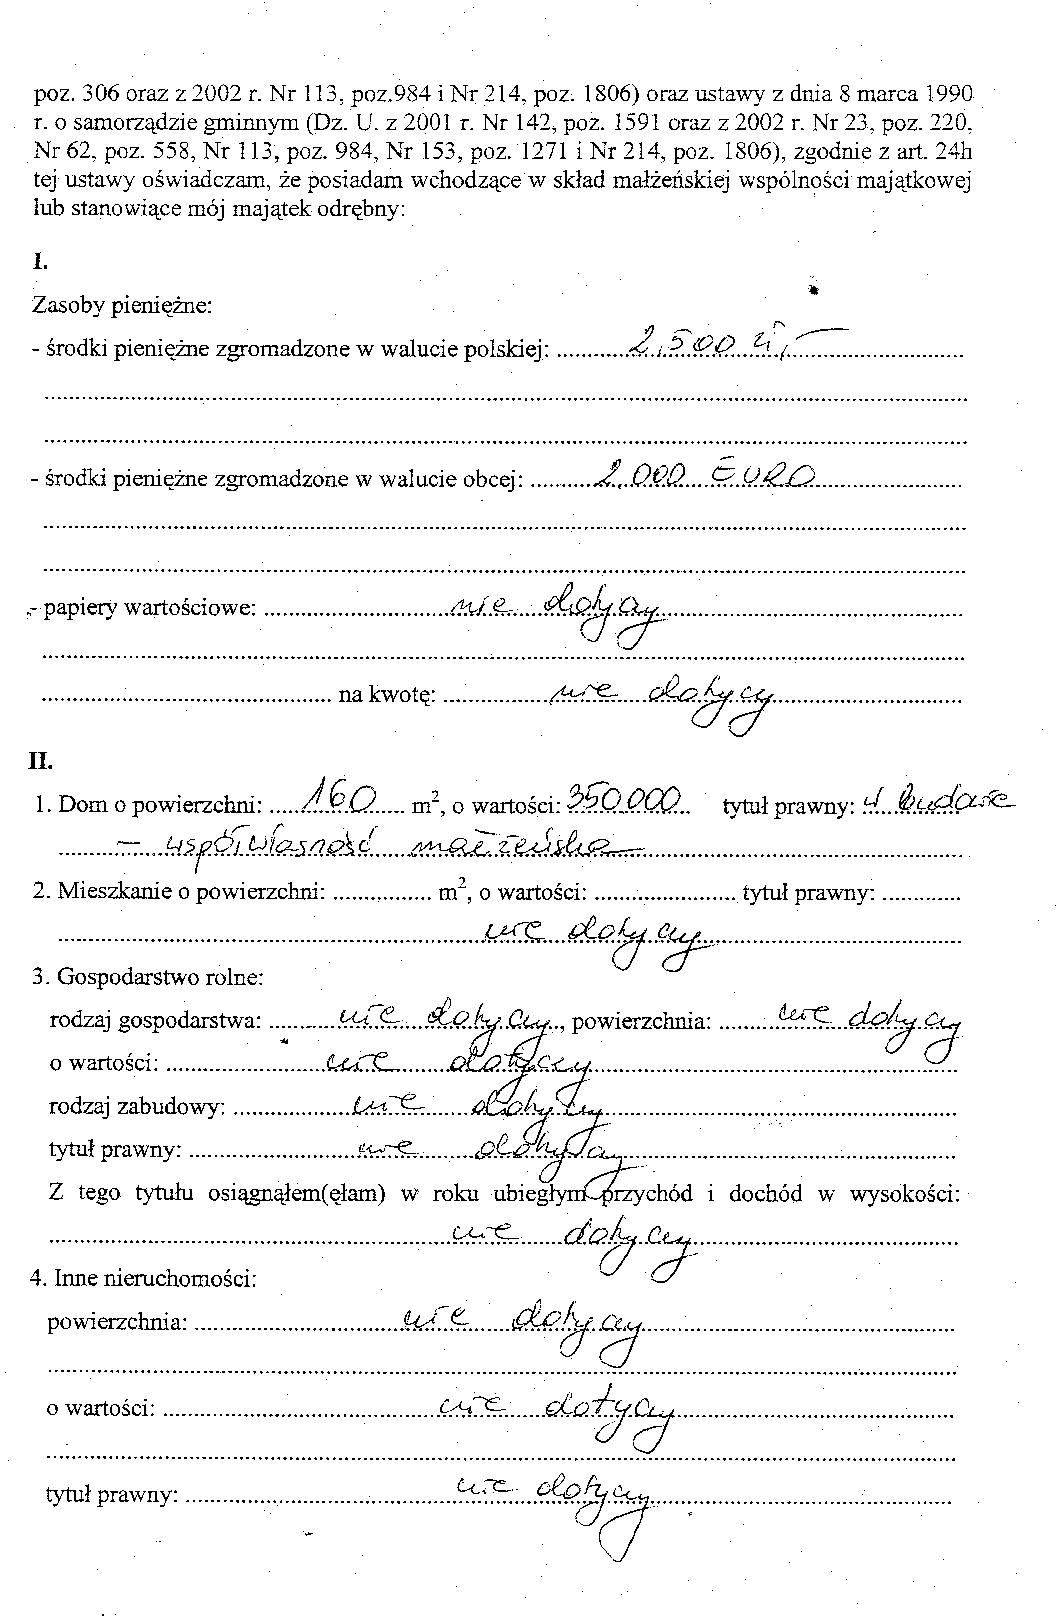 poz. 306 oraz z 2002 r. Nr 113, poz.984 i Nr 214, poz. 1806) oraz ustawy z dnia 8 marca 1990
r. o samorządzie gminnym (Dz. U. z 2001 r. Nr 142, poz. 1591 oraz z 2002 r. Nr 23, poz. 220,
Nr 62, poz. 558, Nr 113, poz. 984, Nr 153, poz. 1271 i Nr 214, poz. 1806), zgodnie z art. 24h
tej ustawy oświadczam, że posiadam wchodzące w skład małżeńskiej wspólności majątkowej
lub stanowiące mój majątek odrębny:
I.
Zasoby pieniężne:
- środki pieniężne zgromadzone w walucie polskiej: 2,500 zł,-
- środki pieniężne zgromadzone w walucie obcej: 2,000 EURO
- papiery wartościowe: nie dotyczy
na kwotę: nie dotyczy
II.
1. Dom o powierzchni: 160 m², o wartości: 350.000 tytuł prawny: w budowie
- współwłasność małżeńska
2. Mieszkanie o powierzchni: m², o wartości: tytuł prawny:
nie dotyczy
3. Gospodarstwo rolne:
rodzaj gospodarstwa: nie dotyczy, powierzchnia: nie dotyczy
o wartości: nie dotyczy
rodzaj zabudowy: nie dotyczy
tytuł prawny: nie dotyczy
Z tego tytułu osiągnąłem(ęłam) w roku ubiegłym przychód i dochód w wysokości:
nie dotyczy
4. Inne nieruchomości:
powierzchnia: nie dotyczy
o wartości: nie dotyczy
tytuł prawny: nie dotyczy